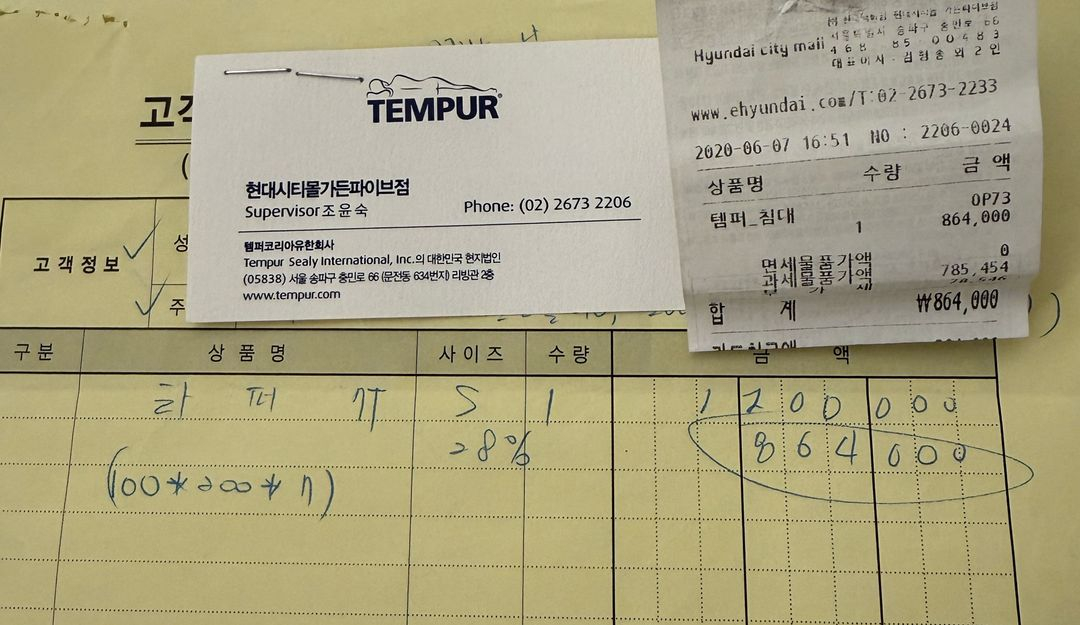 TEMPUR
현대시티몰가든파이브점
Supervisor 조윤숙
Phone: (02) 2673 2206
템퍼코리아유한회사
Tempur Sealy International, Inc.의 대한민국 현지법인
(05838) 서울 송파구 충민로 66 (문전동 634번지) 리빙관 2층
www.tempur.com
Hyundai city mall
서울특별시 송파구 충민로 66
468 85 00483
대표이사 : 김형종 외 2 인
www.ehyundai.com/T:02-2673-2233
2020-06-07 16:51 NO : 2206-0024
상품명 수량 금 액
OP73
템퍼_침대 1 864,000
면세물품가액 0
과세물품가액 785,454
합 계 ₩864,000
고객정보
구분 상품명 사이즈 수량 금 액
퍼 7T S 1 1 200 000
28% 864 000
(100*200*7)